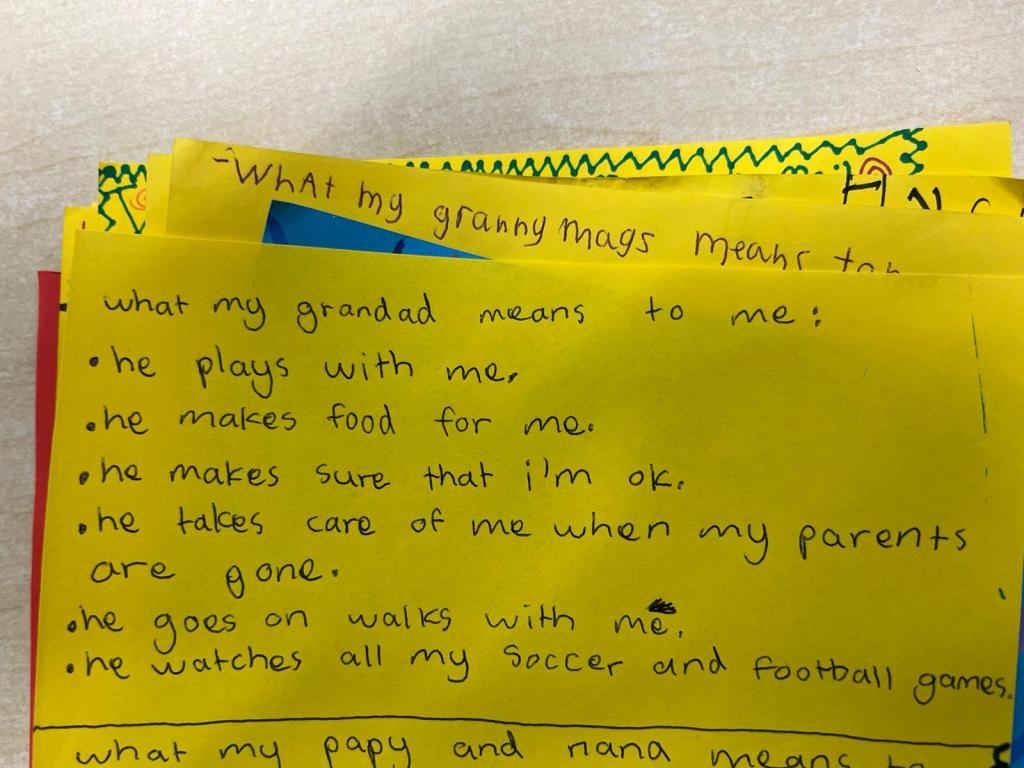 -What my granny mags means to
what my grandad means to me:
• he plays with me.
• he makes food for me.
• he makes sure that i'm ok.
• he takes care of me when my parents
are gone.
• he goes on walks with me.
• he watches all my soccer and football games.
what my papy and nana means to